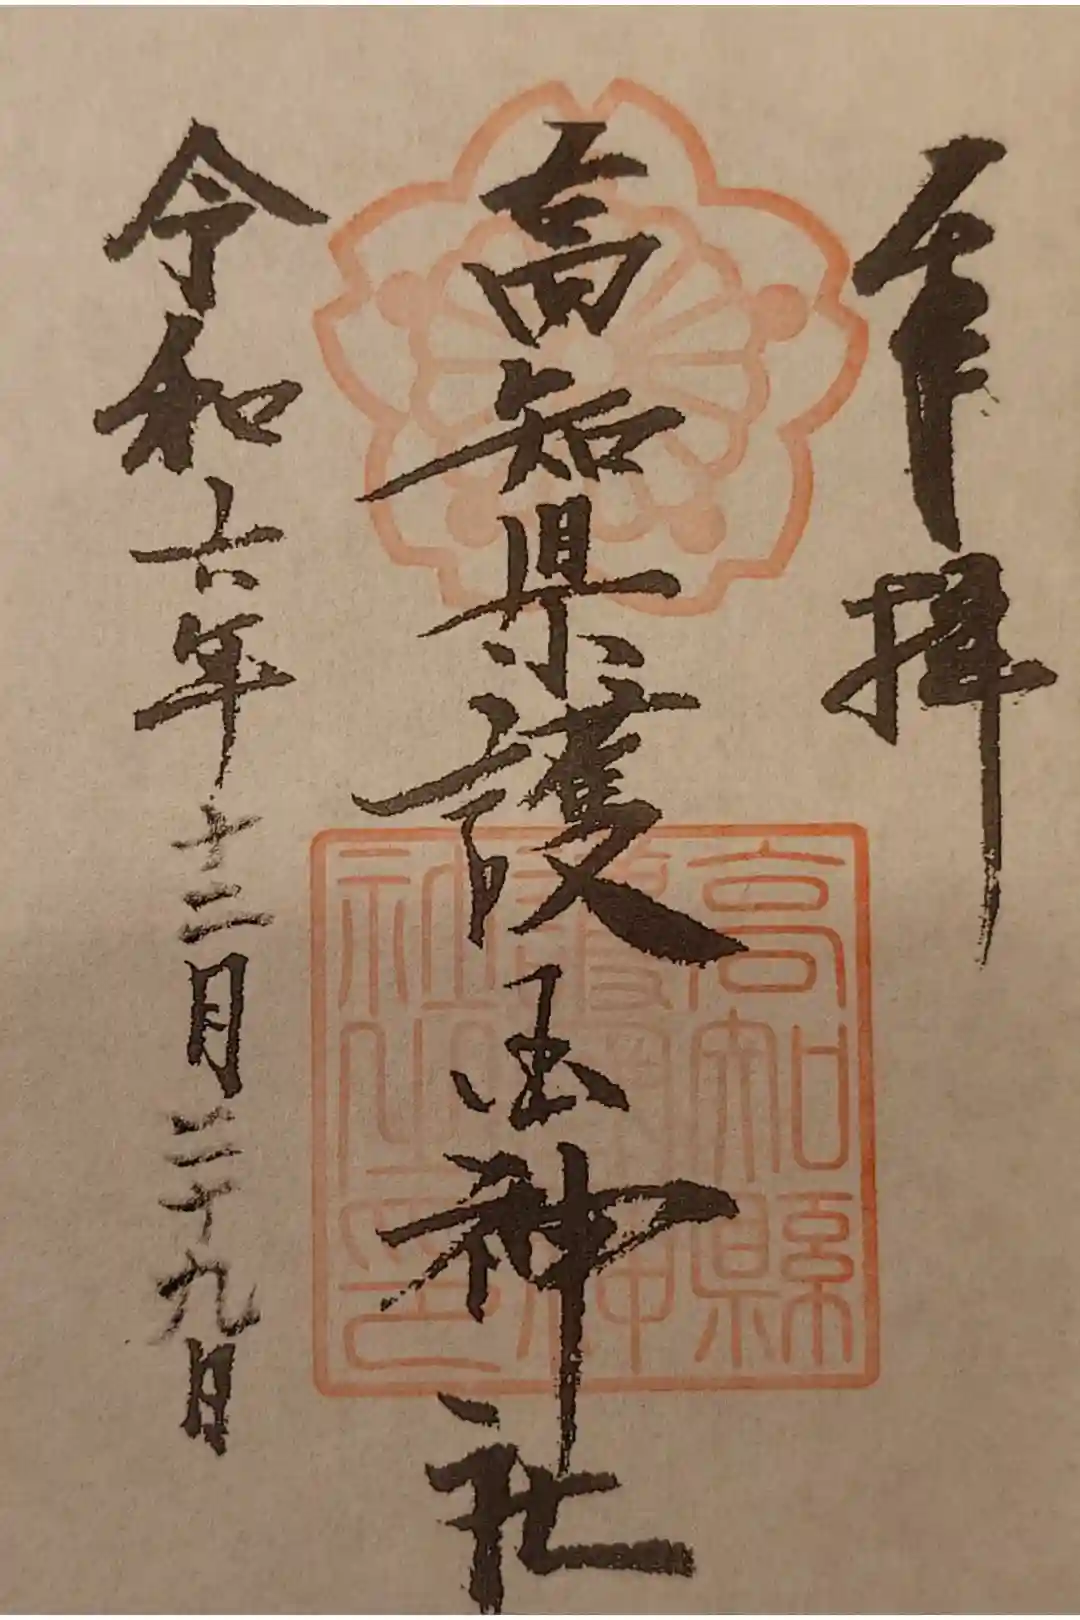 奉拝
高知県護国神社
高知縣
護國神
社之印
令和六年十二月二十九日